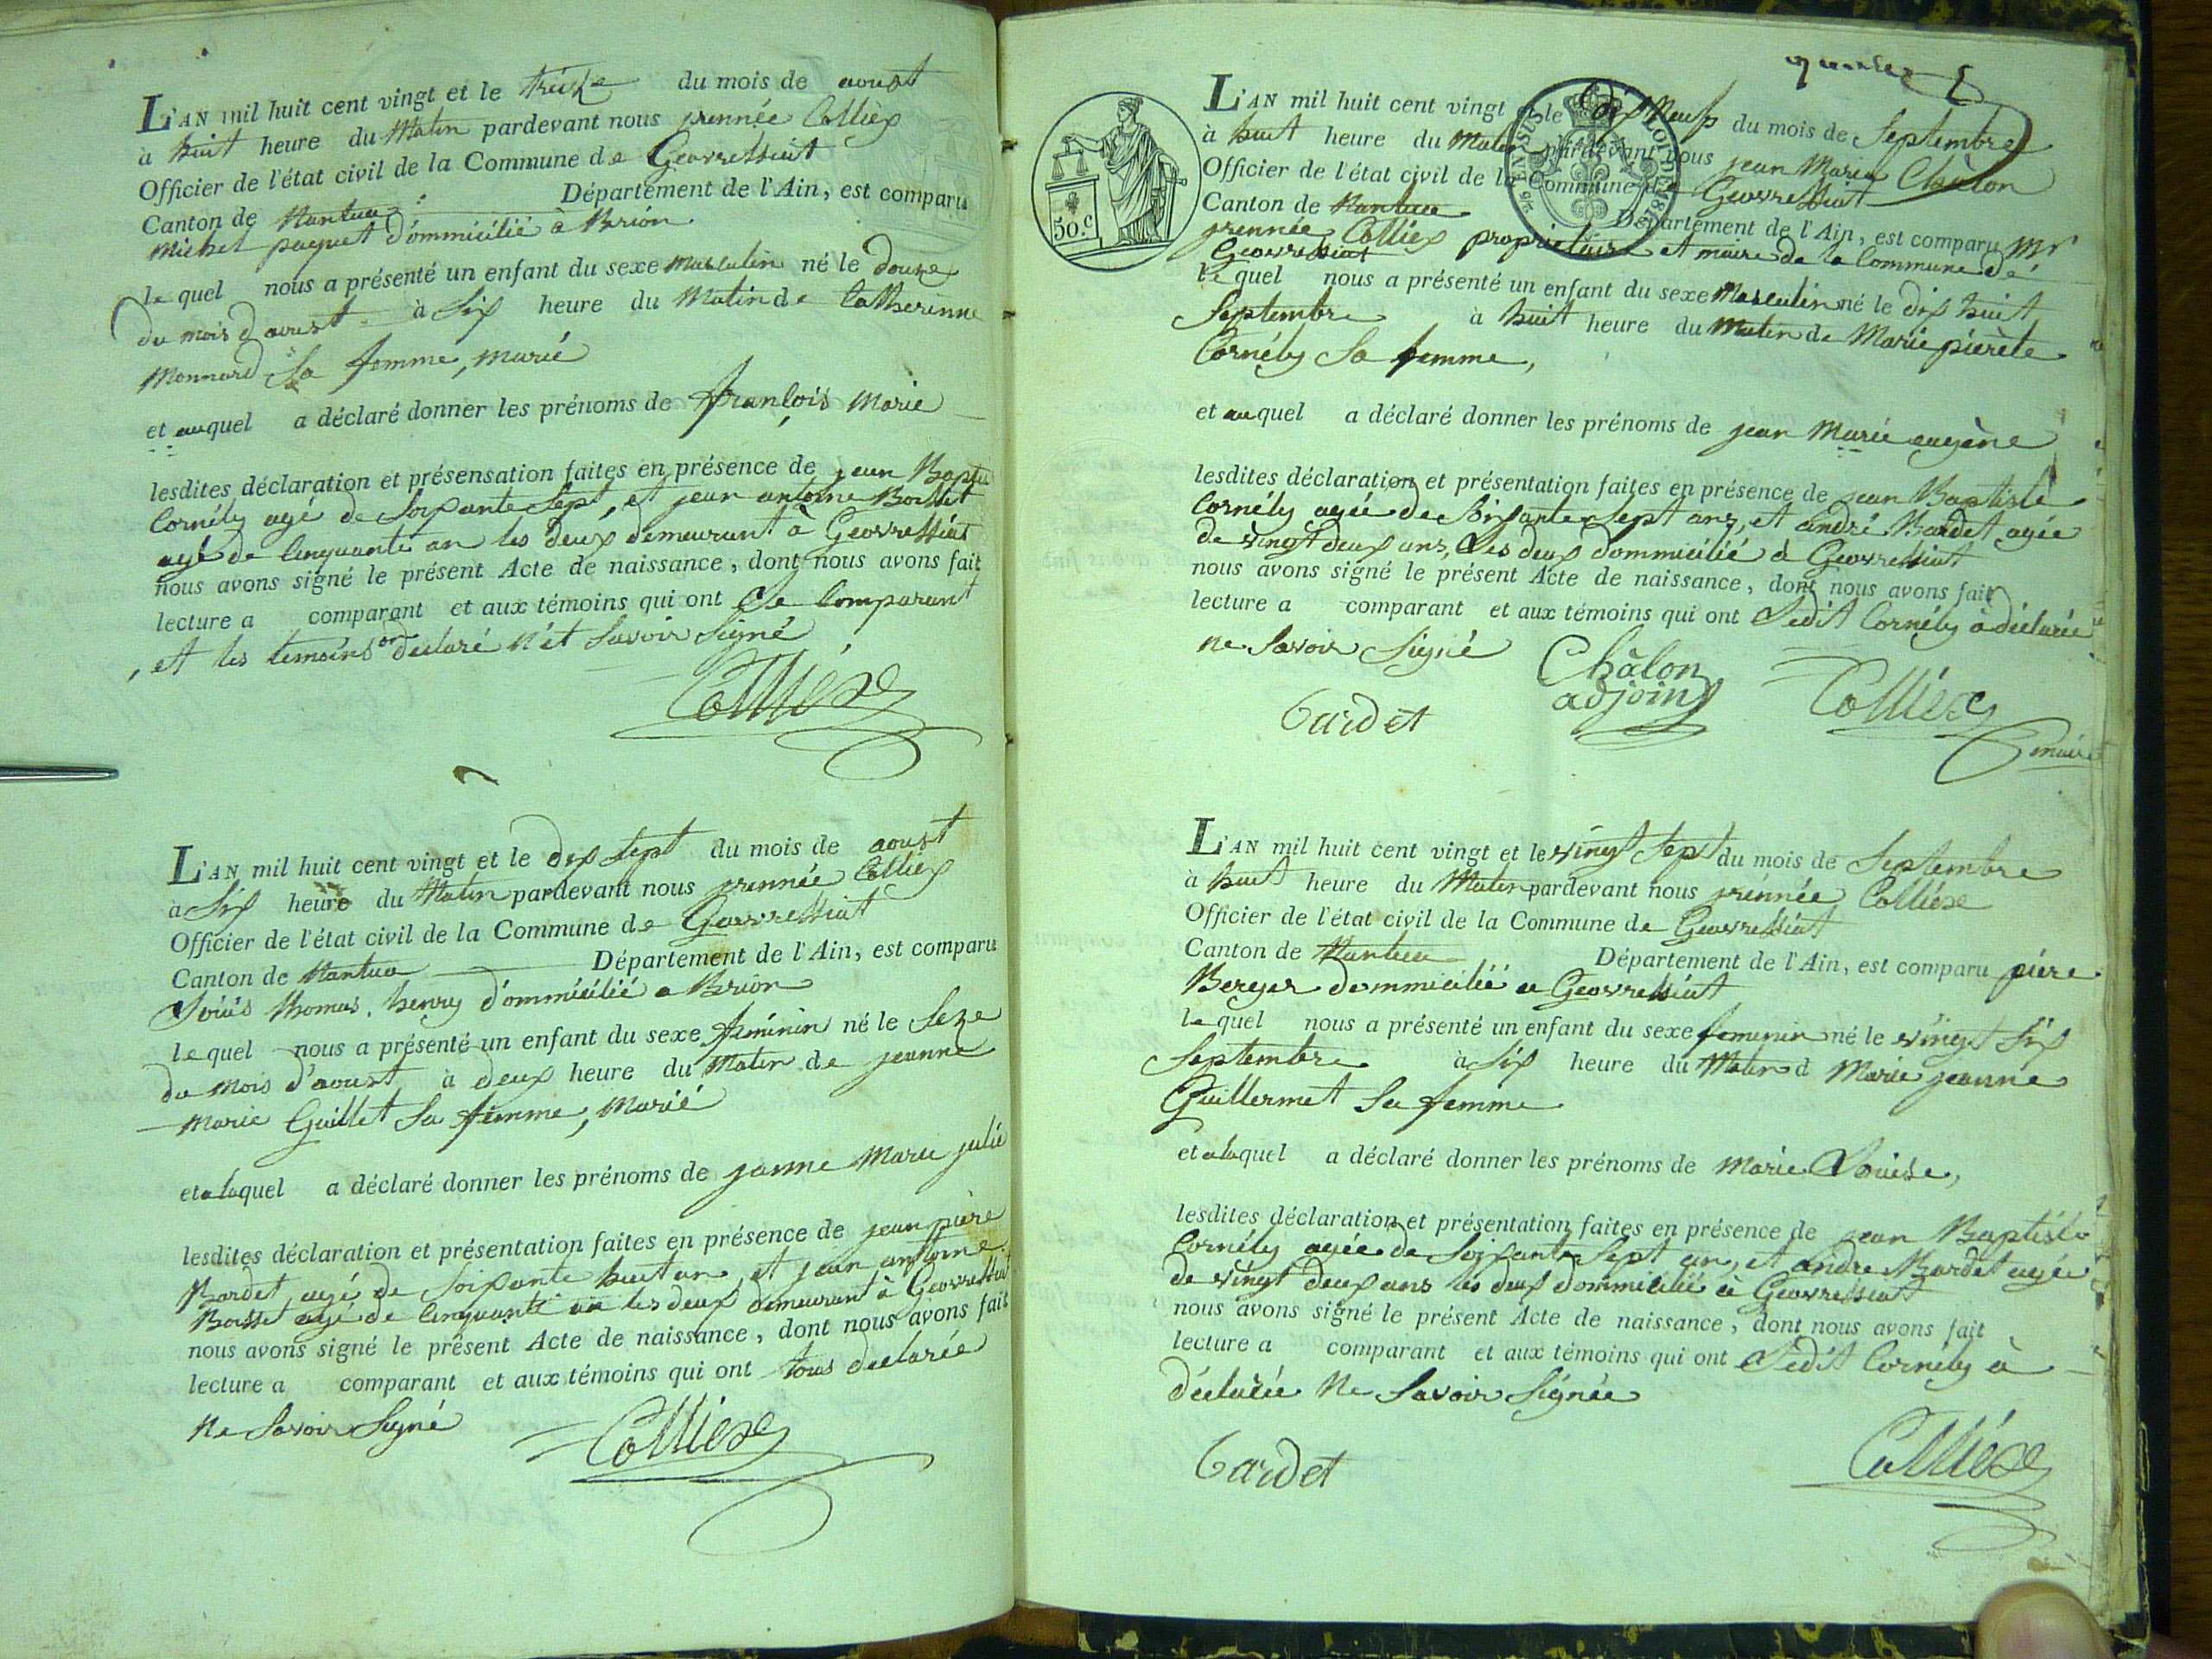 L'AN mil huit cent vingt et le treize du mois de aoust
à huit heure du Matin pardevant nous prennée Colliex
Officier de l'état civil de la Commune de Geovressiat
Canton de Nantua Département de l'Ain, est comparu
Michel paquet d'ommicilié à Brion
le quel nous a présenté un enfant du sexe masculin né le douze
du mois d'aoust à Six heure du Matin de Catherinne
Monnard Sa femme, marié
et auquel a déclaré donner les prénoms de françois Marie
lesdites déclaration et présensation faites en présence de jean Baptis
Cornély agé de Soixante Sept, et jean antoine Bosset
agé de Cinquante an les deux demeurant à Geovressiat
nous avons signé le présent Acte de naissance, dont nous avons fait
lecture a comparant et aux témoins qui ont Le Comparant
, et les temoins ont declaré n'èt Savoir Signé
Collièx
L'AN mil huit cent vingt et le dix Sept du mois de aoust
à Six heure du Matin pardevant nous prennée Colliex
Officier de l'état civil de la Commune de Geovressiat
Canton de Nantua Département de l'Ain, est comparu
Louis thomas henry d'ommicilié a Brion
le quel nous a présenté un enfant du sexe féminin né le Seze
du mois d'aoust à deux heure du Matin de jeanne
Marie Guillet Sa femme, Marié
et a laquel a déclaré donner les prénoms de janne Marie julie
lesdites déclaration et présentation faites en présence de jean piere
Bardet agé de Soixante huit an, et jean antoine
Bosset agé de Cinquante an les deux demeurant à Geovressiat
nous avons signé le présent Acte de naissance, dont nous avons fait
lecture a comparant et aux témoins qui ont tous declarée
ne Savoir Signé
Colliex
L'AN mil huit cent vingt et le dix Neuf du mois de Septembre
à huit heure du Matin pardevant nous jean Marie Châlon
Officier de l'état civil de la Commune de Geovressiat
Canton de Nantua Département de l'Ain, est comparu Mr
prennée Colliex propriétaire et maire de la Commune de
Geovressiat
le quel nous a présenté un enfant du sexe Masculin né le dix huit
Septembre à huit heure du Matin de Marie pierète
Cornély Sa femme,
et auquel a déclaré donner les prénoms de jean Marie eugène
lesdites déclaration et présentation faites en présence de jean Baptiste
Cornély agée de Soixante Sept ans, et andré Bardet agée
de vingt deux ans, Les deux dommicilié à Geovressiat
nous avons signé le présent Acte de naissance, dont nous avons fait
lecture a comparant et aux témoins qui ont Ledit Cornély à déclarée
ne Savoir Signé
Châlon
adjoint
Bardet
Collièx
maire
50.C
L'AN mil huit cent vingt et le vingt Sept du mois de Septembre
à huit heure du Matin pardevant nous prennée Collièx
Officier de l'état civil de la Commune de Geovressiat
Canton de Nantua Département de l'Ain, est comparu piere
Berger dommicilié a Geovressiat
le quel nous a présenté un enfant du sexe femenin né le vingt Six
Septembre à Six heure du Matin d Marie jeanne
Guillermet Sa femme
et a laquel a déclaré donner les prénoms de Marie Louise,
lesdites déclaration et présentation faites en présence de jean Baptiste
Cornély agée de Soixante Sept an, et andre Bardet agée
de vingt deux ans les deux dommicilié à Geovressiat
nous avons signé le présent Acte de naissance, dont nous avons fait
lecture a comparant et aux témoins qui ont Ledit Cornély à
déclarée Ne Savoir Signée
Bardet
Collièx